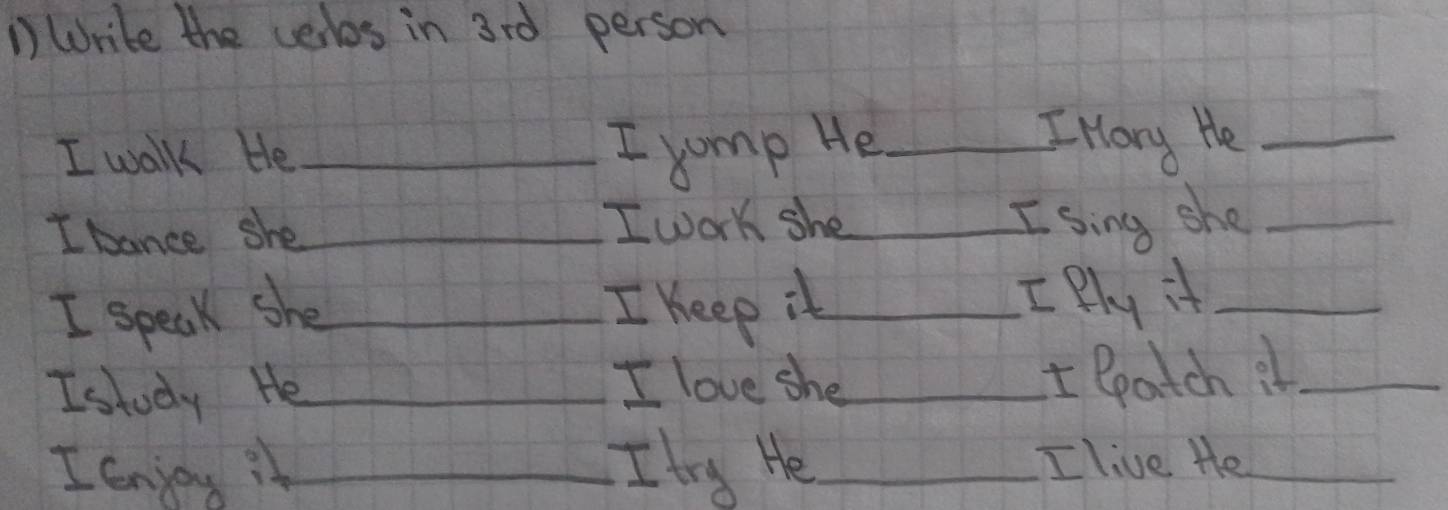 1) Write the verbs in 3rd person
I walk He_______ I jump He_____ I Mary He_____
I Dance she_______ I work she_____ I Sing she_____
I Speak She_______ I Keep it_____ I fly it_____
I study He_______ I love she_____ I Catch it_____
I Enjoy it_______ I try He_____ I live He_____